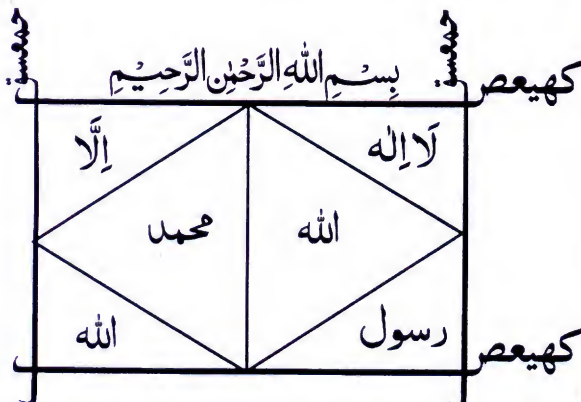 حمعسق حمعسق
بِسْمِ اللهِ الرَّحْمٰنِ الرَّحِيْمِ
كهيعص
لَا اِلٰه اِلَّا
الله محمد
رسول الله
كهيعص